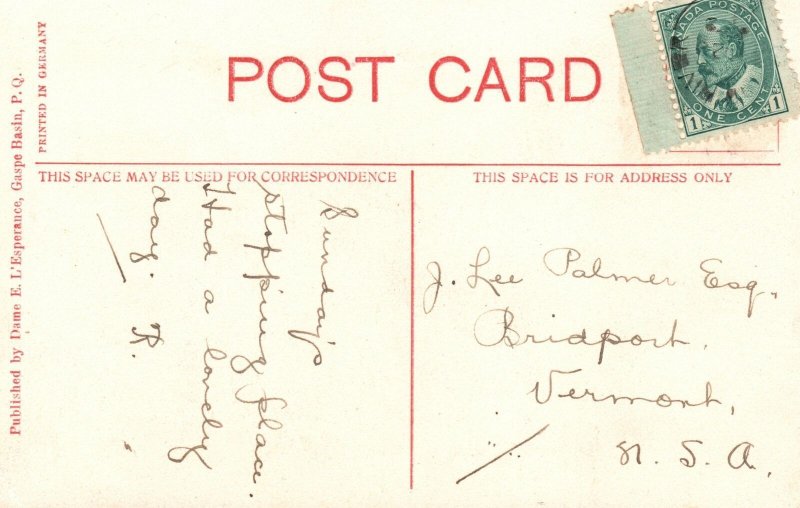 POST CARD
CANADA POSTAGE
1 ONE CENT 1
Published by Dame E. L'Esperance, Gaspe Basin, P. Q.
PRINTED IN GERMANY
THIS SPACE MAY BE USED FOR CORRESPONDENCE
THIS SPACE IS FOR ADDRESS ONLY
Sunday's
stopping place.
Had a lovely
day. R.
J. Lee Palmer Esq.,
Bridport,
Vermont,
U. S. A.